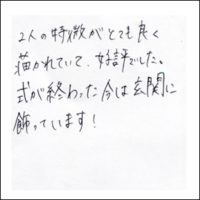 2人の特徴がとても良く
描かれていて、好評でした。
式が終わった今は玄関に
飾っています！